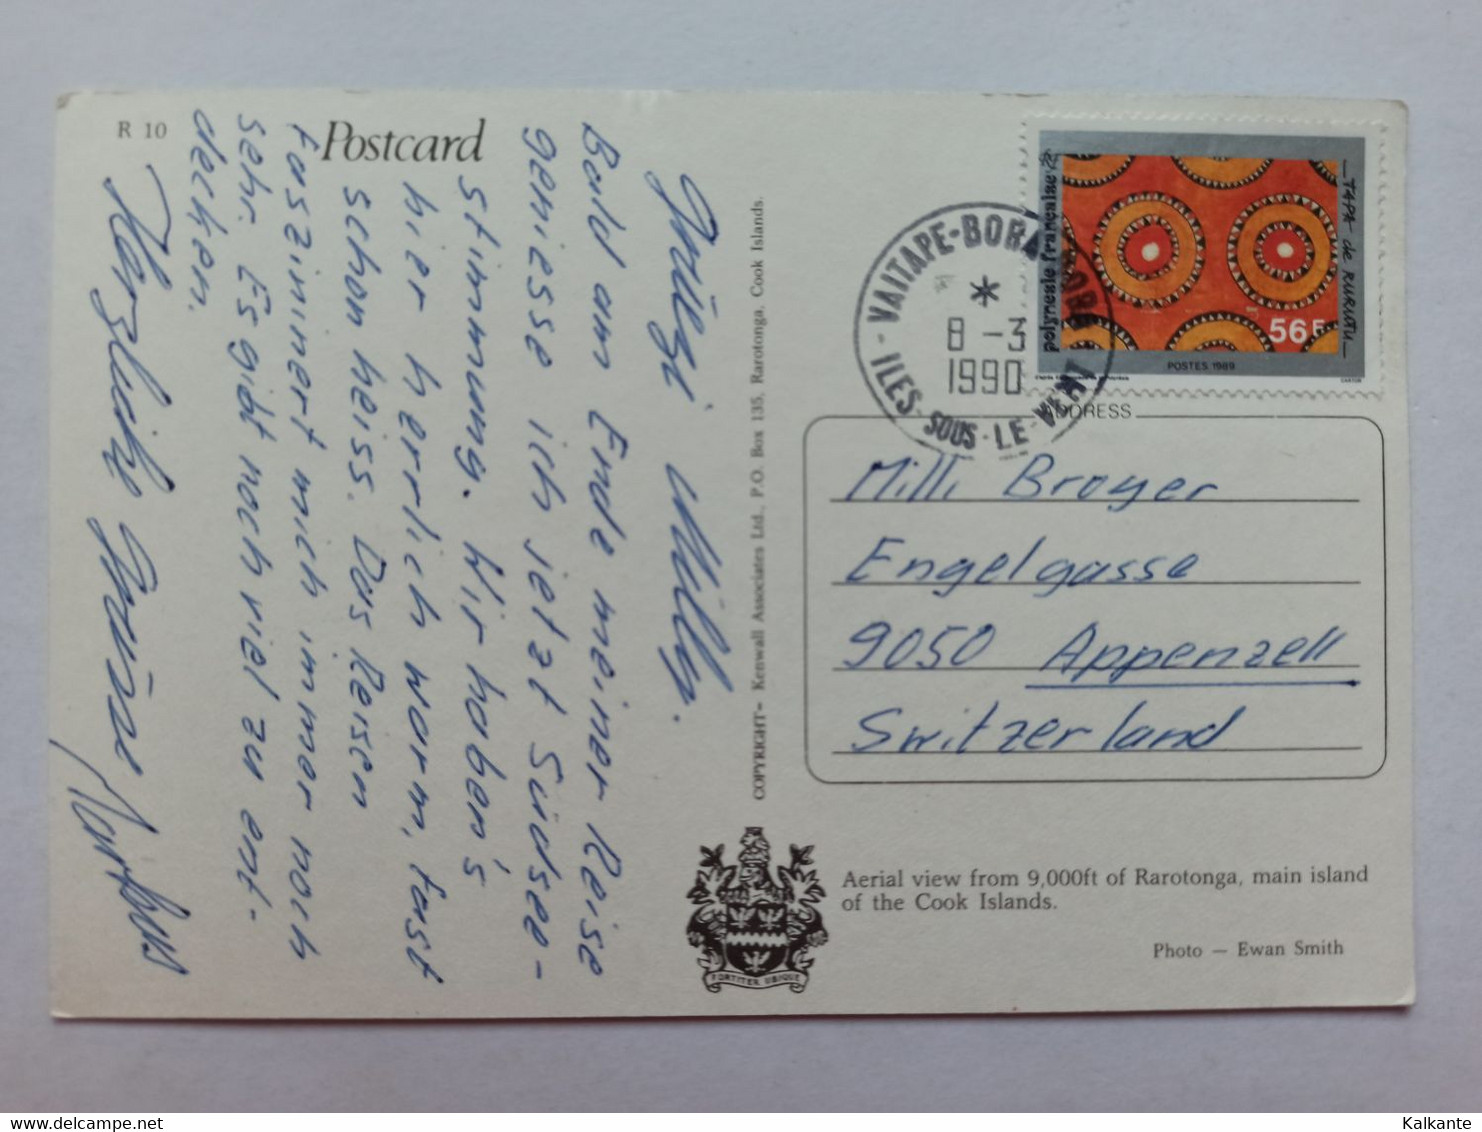 R 10
Postcard
Grüezi Milly.
Bald am Ende meiner Reise
geniesse ich jetzt Südsee-
stimmung. Wir haben's
hier herrlich warm, fast
schon heiss. Das Reisen
fasziniert mich immer noch
sehr. Es gibt noch viel zu ent-
decken.
Herzliche Grüsse
COPYRIGHT– Kenwall Associates Ltd., P.O. Box 135, Rarotonga, Cook Islands.
polynesie française
TAPA de RURUTU
56F
POSTES 1989
VAITAPE-BORA-BORA
8 -3
1990
ILES-SOUS-LE-VENT
ADDRESS
Milli Broger
Engelgasse
9050 Appenzell
Switzerland
FORTITER UBIQUE
Aerial view from 9,000ft of Rarotonga, main island
of the Cook Islands.
Photo — Ewan Smith
Kalkante
delcampe.net